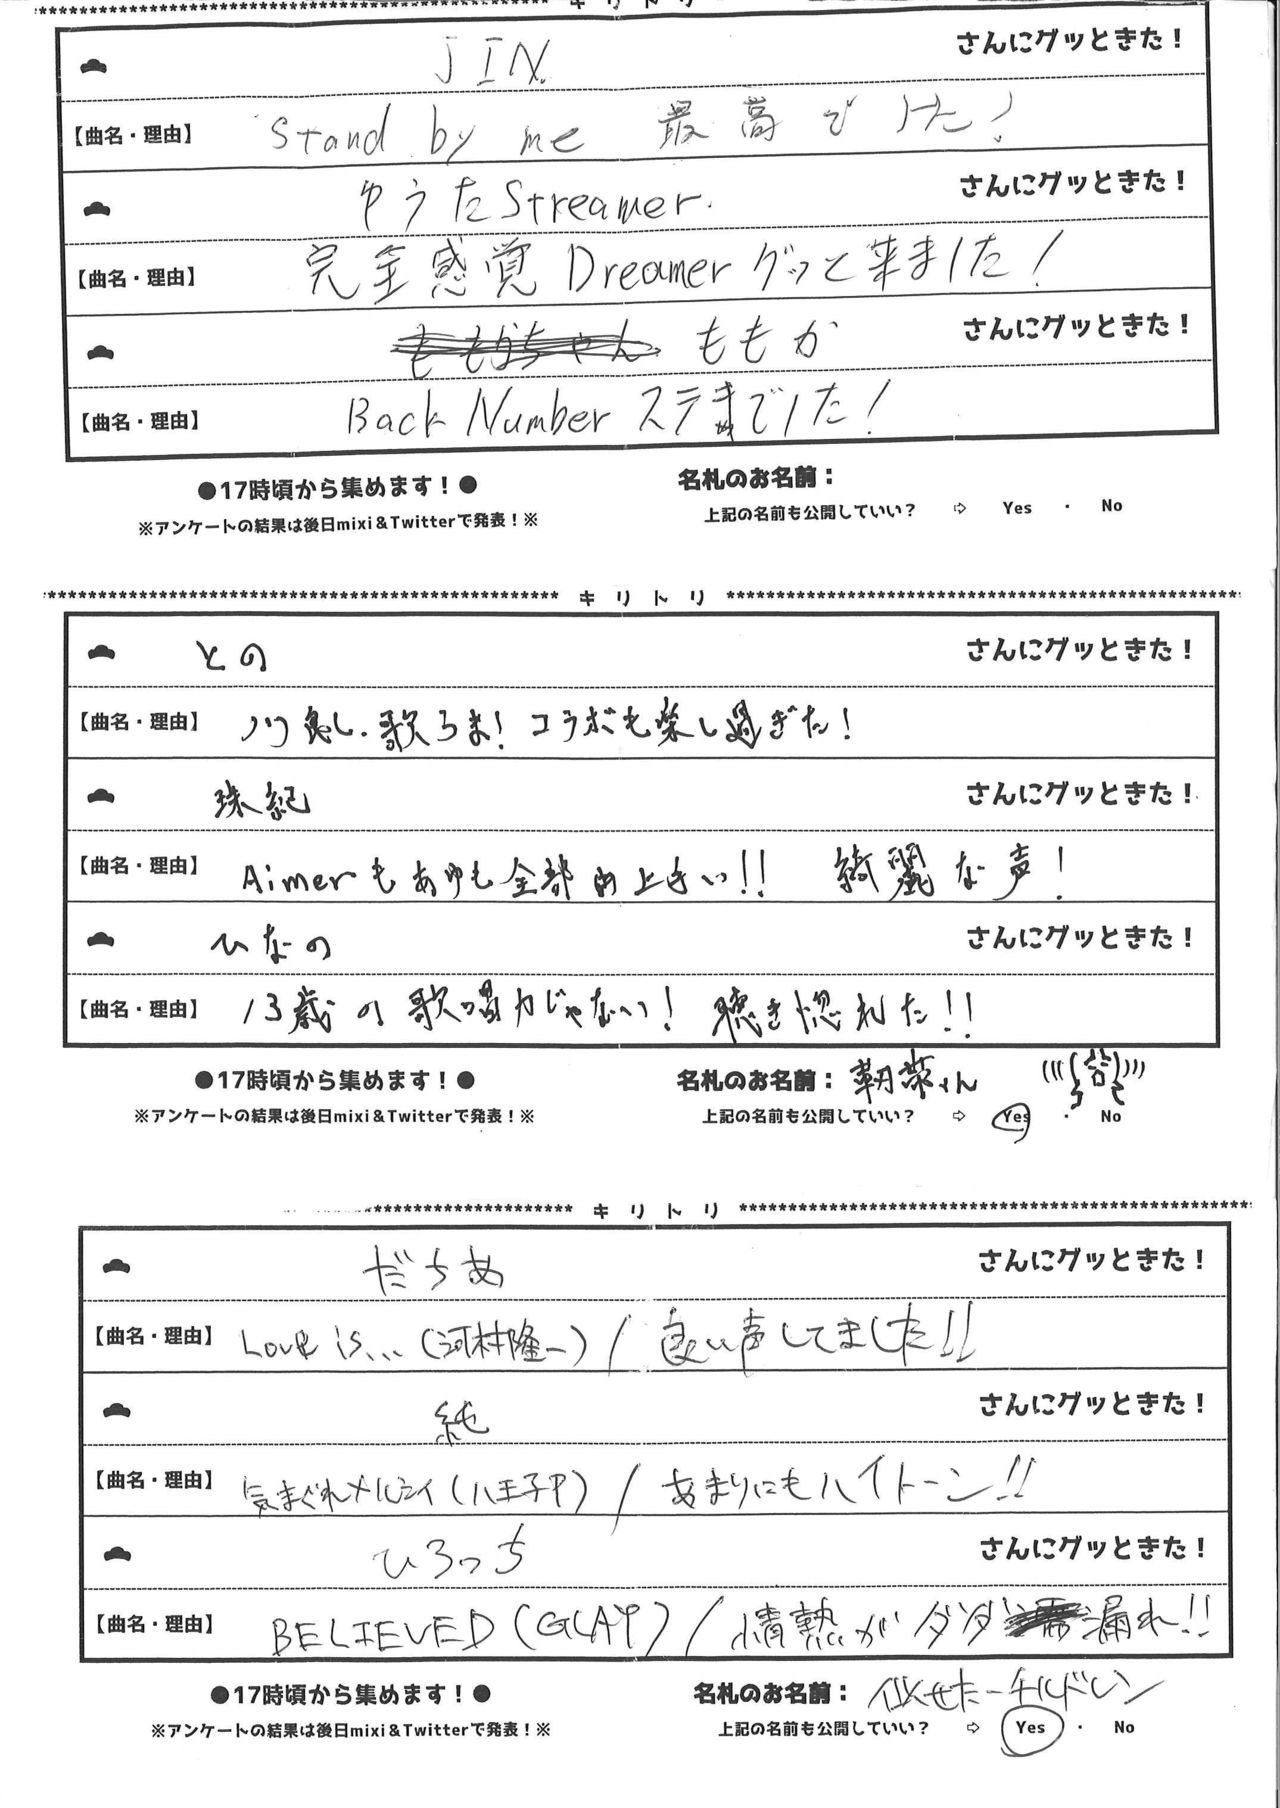 キリトリ
JIN さんにグッときた！
【曲名・理由】 Stand by me 最高でした！
ゆうたStreamer. さんにグッときた！
【曲名・理由】 完全感覚Dreamerグッと来ました！
ももか さんにグッときた！
【曲名・理由】 Back Number ステキでした！
●17時頃から集めます！● 名札のお名前：
※アンケートの結果は後日mixi＆Twitterで発表！※ 上記の名前も公開していい？ ⇨ Yes ・ No
******* キリトリ *******
との さんにグッときた！
【曲名・理由】 ノリ良し、歌うま！コラボも楽し過ぎた！
珠紀 さんにグッときた！
【曲名・理由】 Aimerもあゆも全部上手い!! 綺麗な声！
ひなの さんにグッときた！
【曲名・理由】 13歳の歌唱力じゃない！聴き惚れた!!
●17時頃から集めます！● 名札のお名前：
※アンケートの結果は後日mixi＆Twitterで発表！※ 上記の名前も公開していい？ ⇨ Yes ・ No
******* キリトリ *******
だちあ さんにグッときた！
【曲名・理由】 Love is...（河村隆一）/ 良い声してました!!
純 さんにグッときた！
【曲名・理由】 気まぐれメルシィ（八王子P）/ あまりにもハイトーン!!
ひろっち さんにグッときた！
【曲名・理由】 BELIEVED（GLAY）/ 情熱がダダ漏れ!!
●17時頃から集めます！● 名札のお名前：似せたーチルドレン
※アンケートの結果は後日mixi＆Twitterで発表！※ 上記の名前も公開していい？ ⇨ Yes ・ No